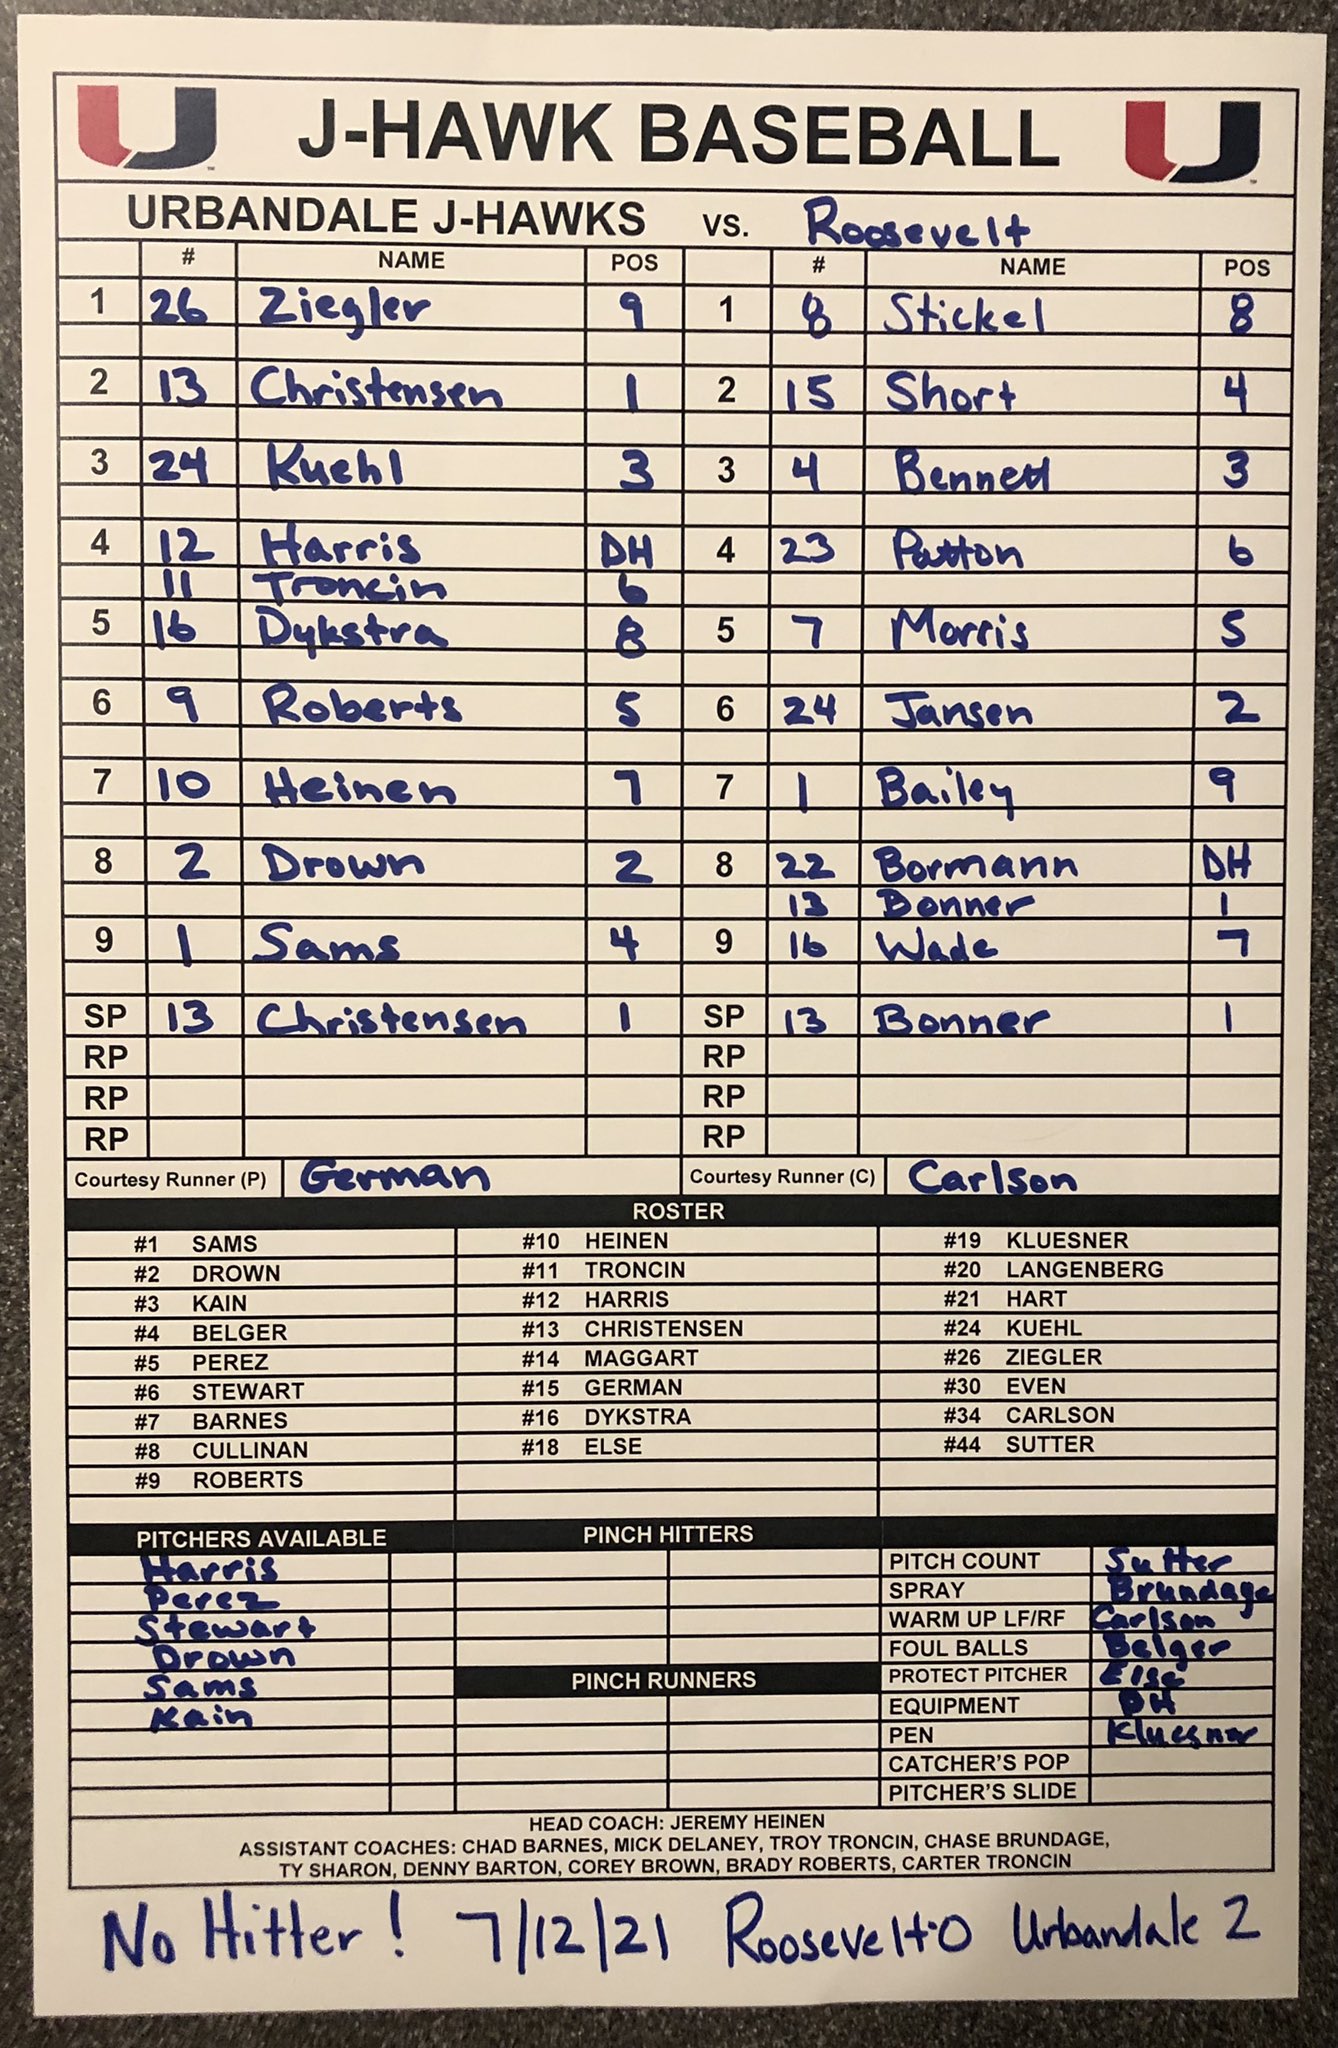 J-HAWK BASEBALL
URBANDALE J-HAWKS VS. Roosevelt
# NAME POS # NAME POS
1 26 Ziegler 9 1 8 Stickel 8
2 13 Christensen 1 2 15 Short 4
3 24 Kuehl 3 3 4 Bennett 3
4 12 Harris DH 4 23 Patton 6
11 Troncin 6
5 16 Dykstra 8 5 7 Morris 5
6 9 Roberts 5 6 24 Jansen 2
7 10 Heinen 7 7 1 Bailey 9
8 2 Drown 2 8 22 Bormann DH
13 Bonner 1
9 1 Sams 4 9 16 Wade 7
SP 13 Christensen 1 SP 13 Bonner 1
RP RP
RP RP
RP RP
Courtesy Runner (P) German Courtesy Runner (C) Carlson
ROSTER
#1 SAMS #10 HEINEN #19 KLUESNER
#2 DROWN #11 TRONCIN #20 LANGENBERG
#3 KAIN #12 HARRIS #21 HART
#4 BELGER #13 CHRISTENSEN #24 KUEHL
#5 PEREZ #14 MAGGART #26 ZIEGLER
#6 STEWART #15 GERMAN #30 EVEN
#7 BARNES #16 DYKSTRA #34 CARLSON
#8 CULLINAN #18 ELSE #44 SUTTER
#9 ROBERTS
PITCHERS AVAILABLE PINCH HITTERS
Harris PITCH COUNT Sutter
Perez SPRAY Brundage
Stewart WARM UP LF/RF Carlson
Drown FOUL BALLS Belger
Sams PINCH RUNNERS PROTECT PITCHER Else
Kain EQUIPMENT DH
PEN Kluesner
CATCHER'S POP
PITCHER'S SLIDE
HEAD COACH: JEREMY HEINEN
ASSISTANT COACHES: CHAD BARNES, MICK DELANEY, TROY TRONCIN, CHASE BRUNDAGE,
TY SHARON, DENNY BARTON, COREY BROWN, BRADY ROBERTS, CARTER TRONCIN
No Hitter! 7/12/21 Roosevelt 0 Urbandale 2